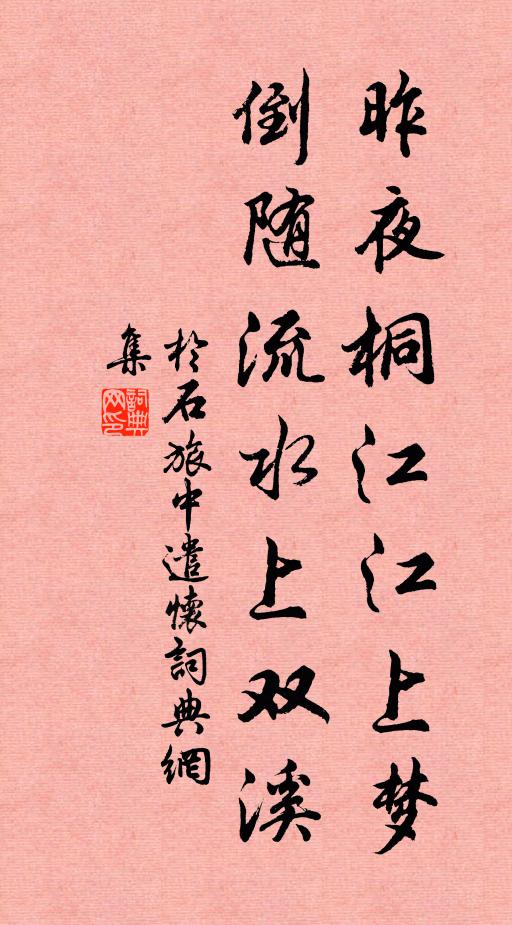 昨夜桐江江上梦
倒随流水上双溪
於石旅中遣懷詞典網
集
詞典网印